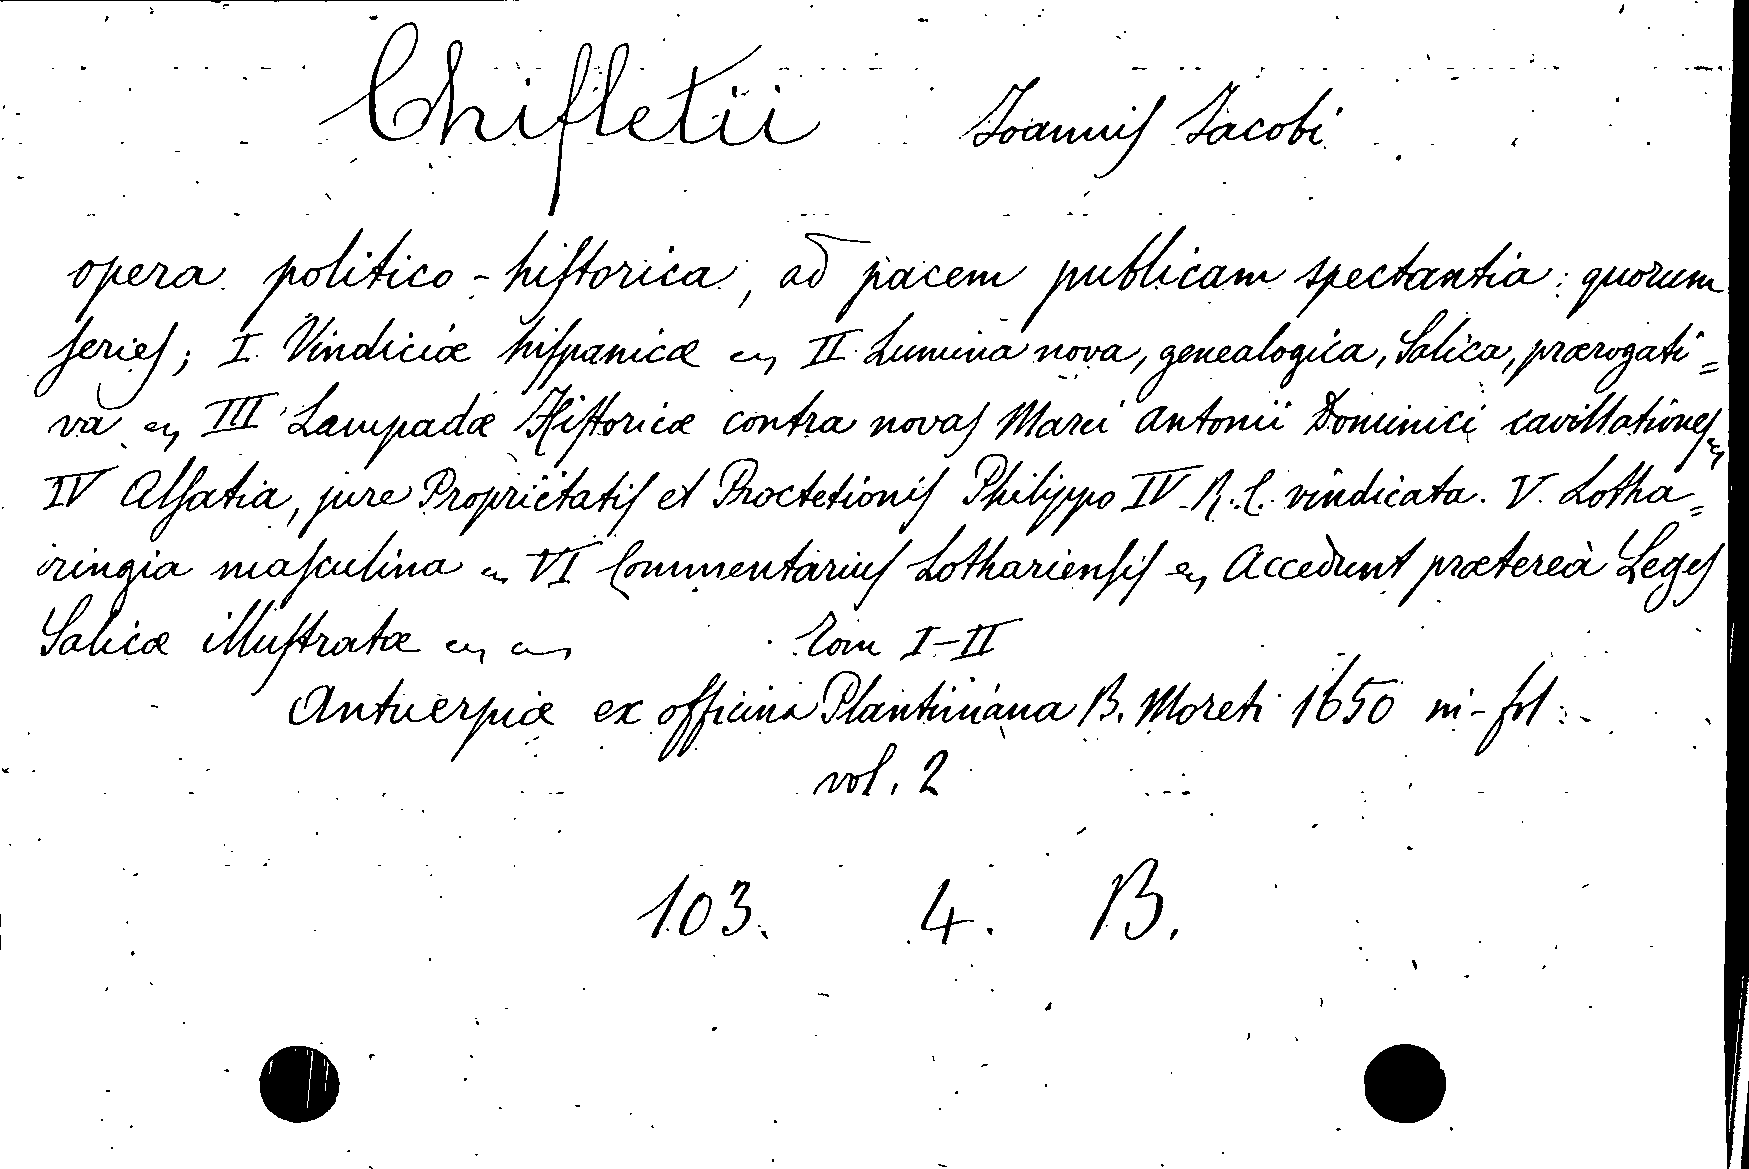 Chifletii Joannis Jacobi
opera politico-historica, ad pacem publicam spectantia: quorum
series; I. Vindiciæ hispanicæ en II. Lumina nova, genealogica, Salica, prærogati=
va en III Lampadæ Historicæ contra novas Marci Antonii Dominici cavillationes en
IV Alsatia, jure Proprietatis et Proctetionis Philippo IV. R. C. vindicata. V. Lotha=
ringia masculina en VI Commentarius Lothariensis en Accedunt prætereà Leges
Salicæ illustratæ en en Tom I-II
Antuerpiæ ex officina Plantiniana B. Moreti 1650 in-fol.
vol. 2
103. 4. B.